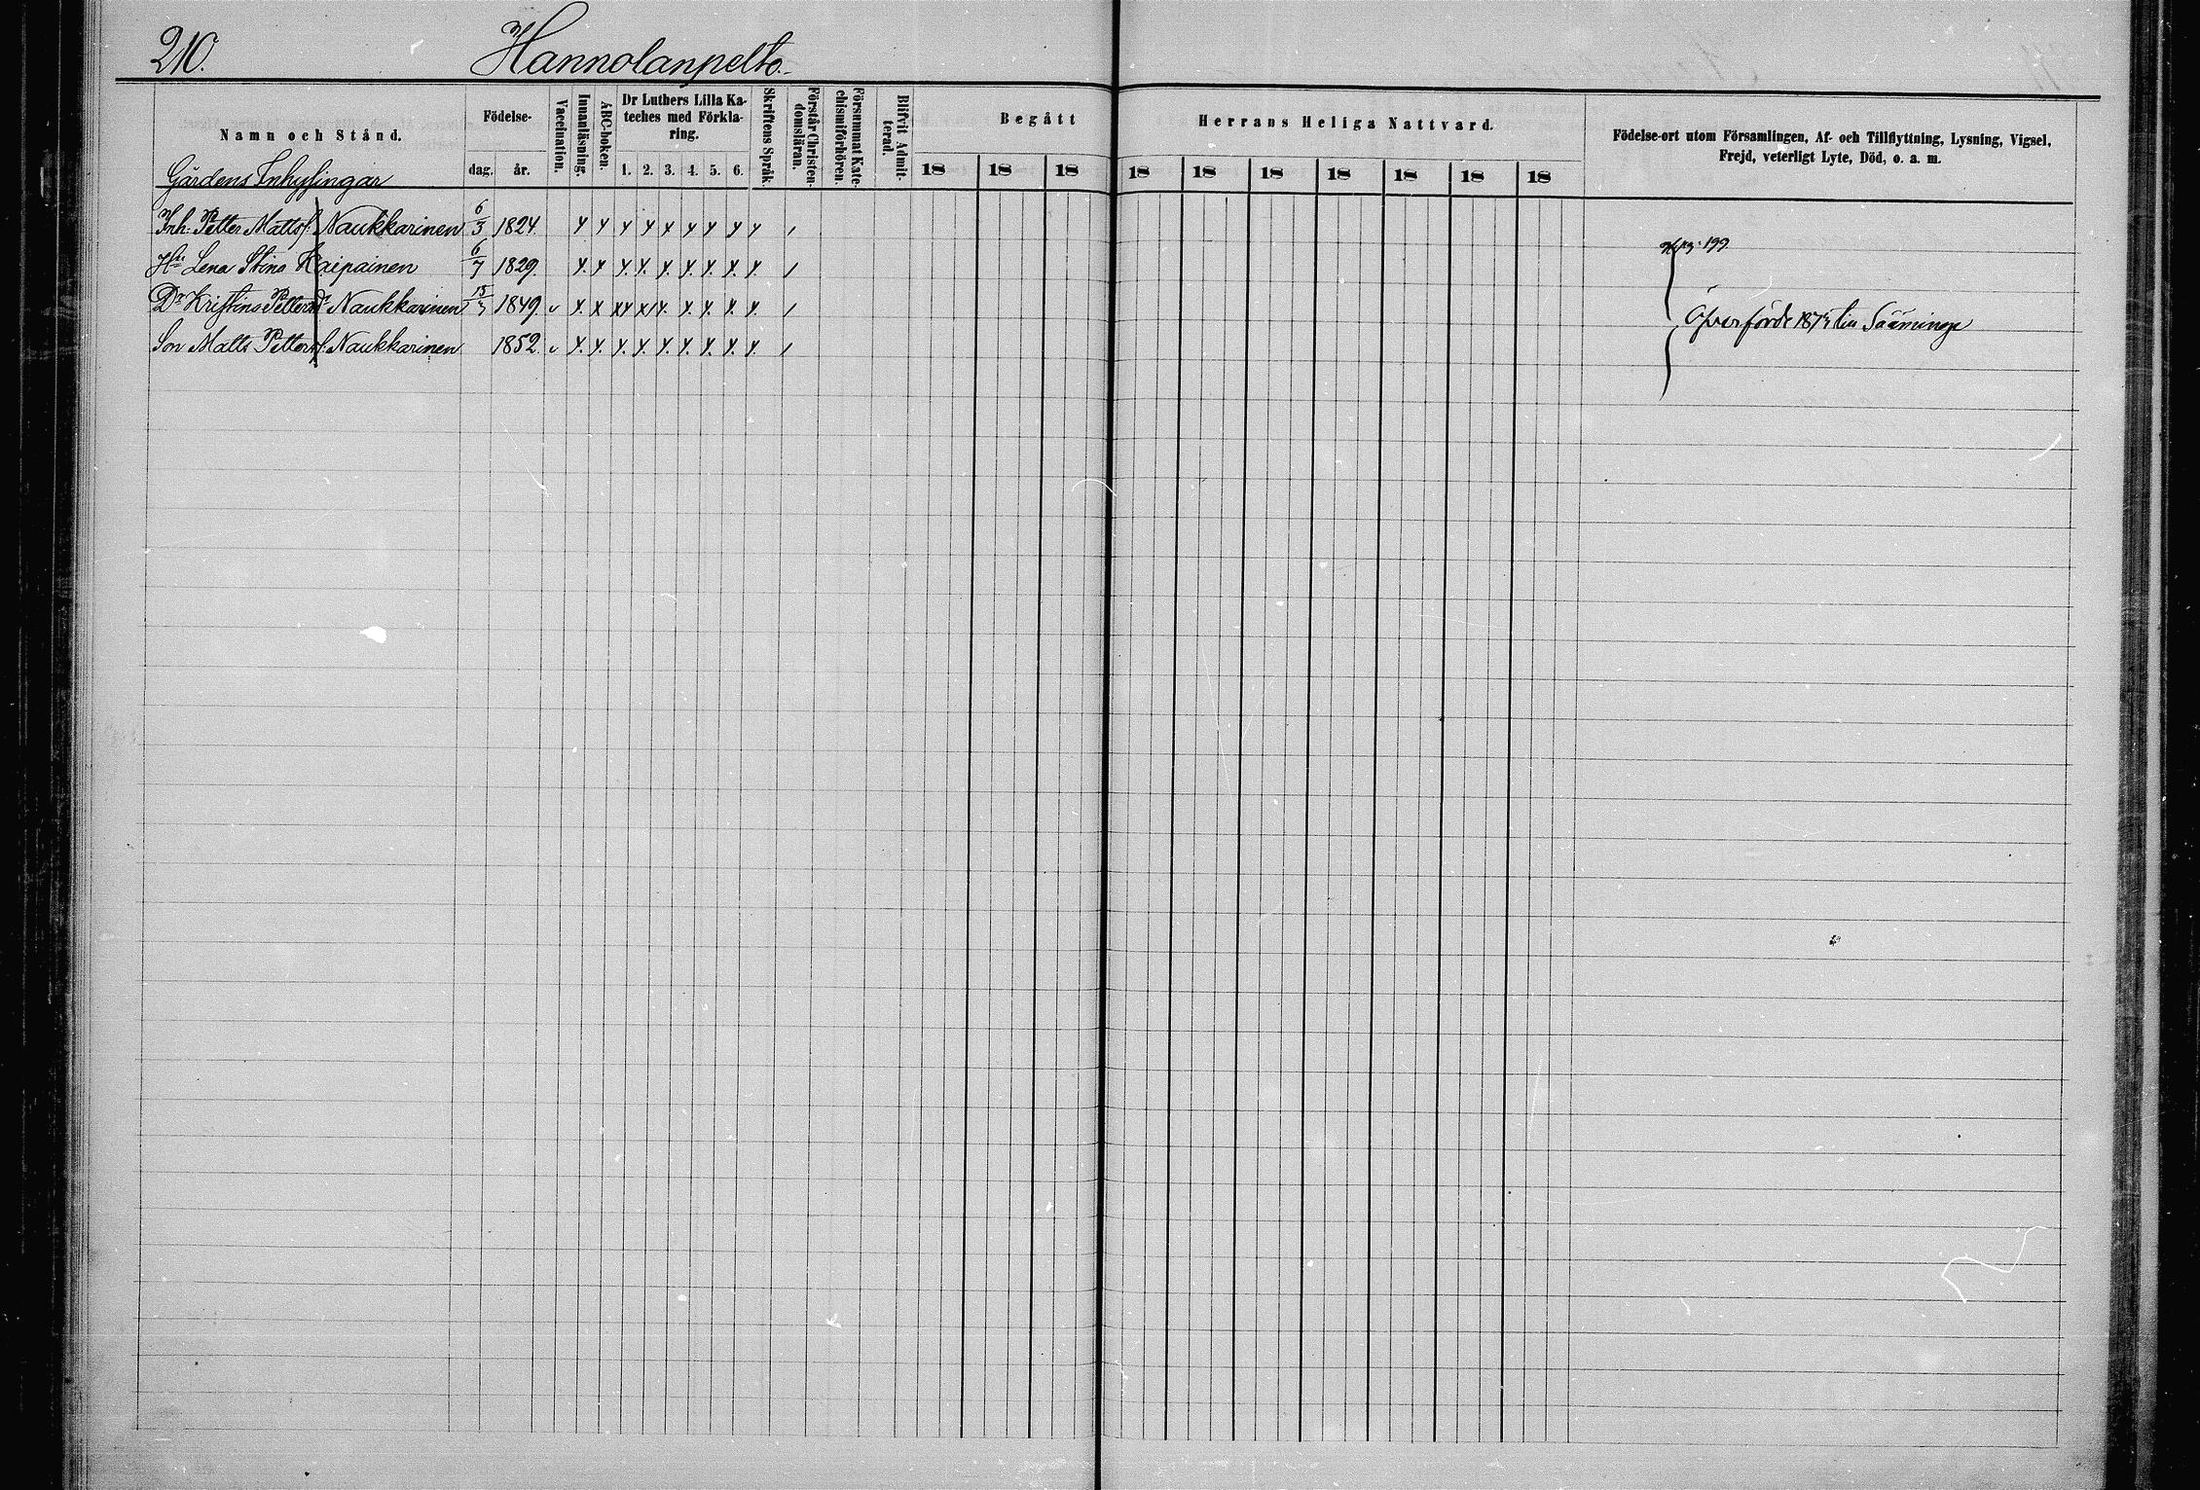 210. Hannolanpelto.
Namn och Stånd.
Födelse-
dag. år.
Vaccination.
Innanläsning.
ABC-boken.
Dr Luthers Lilla Ka-
teches med Förkla-
ring.
1. 2. 3. 4. 5. 6.
Skriftens Språk.
Förstår Christen-
domsläran.
Försummat Kate-
chismiförhören.
Blifvit Admit-
terad.
Begått Herrans Heliga Nattvard.
18 18 18 18 18 18 18 18 18 18
Födelse-ort utom Församlingen, Af- och Tillflyttning, Lysning, Vigsel,
Frejd, veterligt Lyte, Död, o. a. m.
Gårdens Inhysingar
Inh. Petter Mattsf. Naukkarinen 6/3 1824.
Hu Lena Stina Haipainen 6/7 1829.
Dr Kristina Pettersdr Naukkarinen 1849.
Son Matts Pettersf. Naukkarinen 1852
199.
Öfverförde till Sääminge